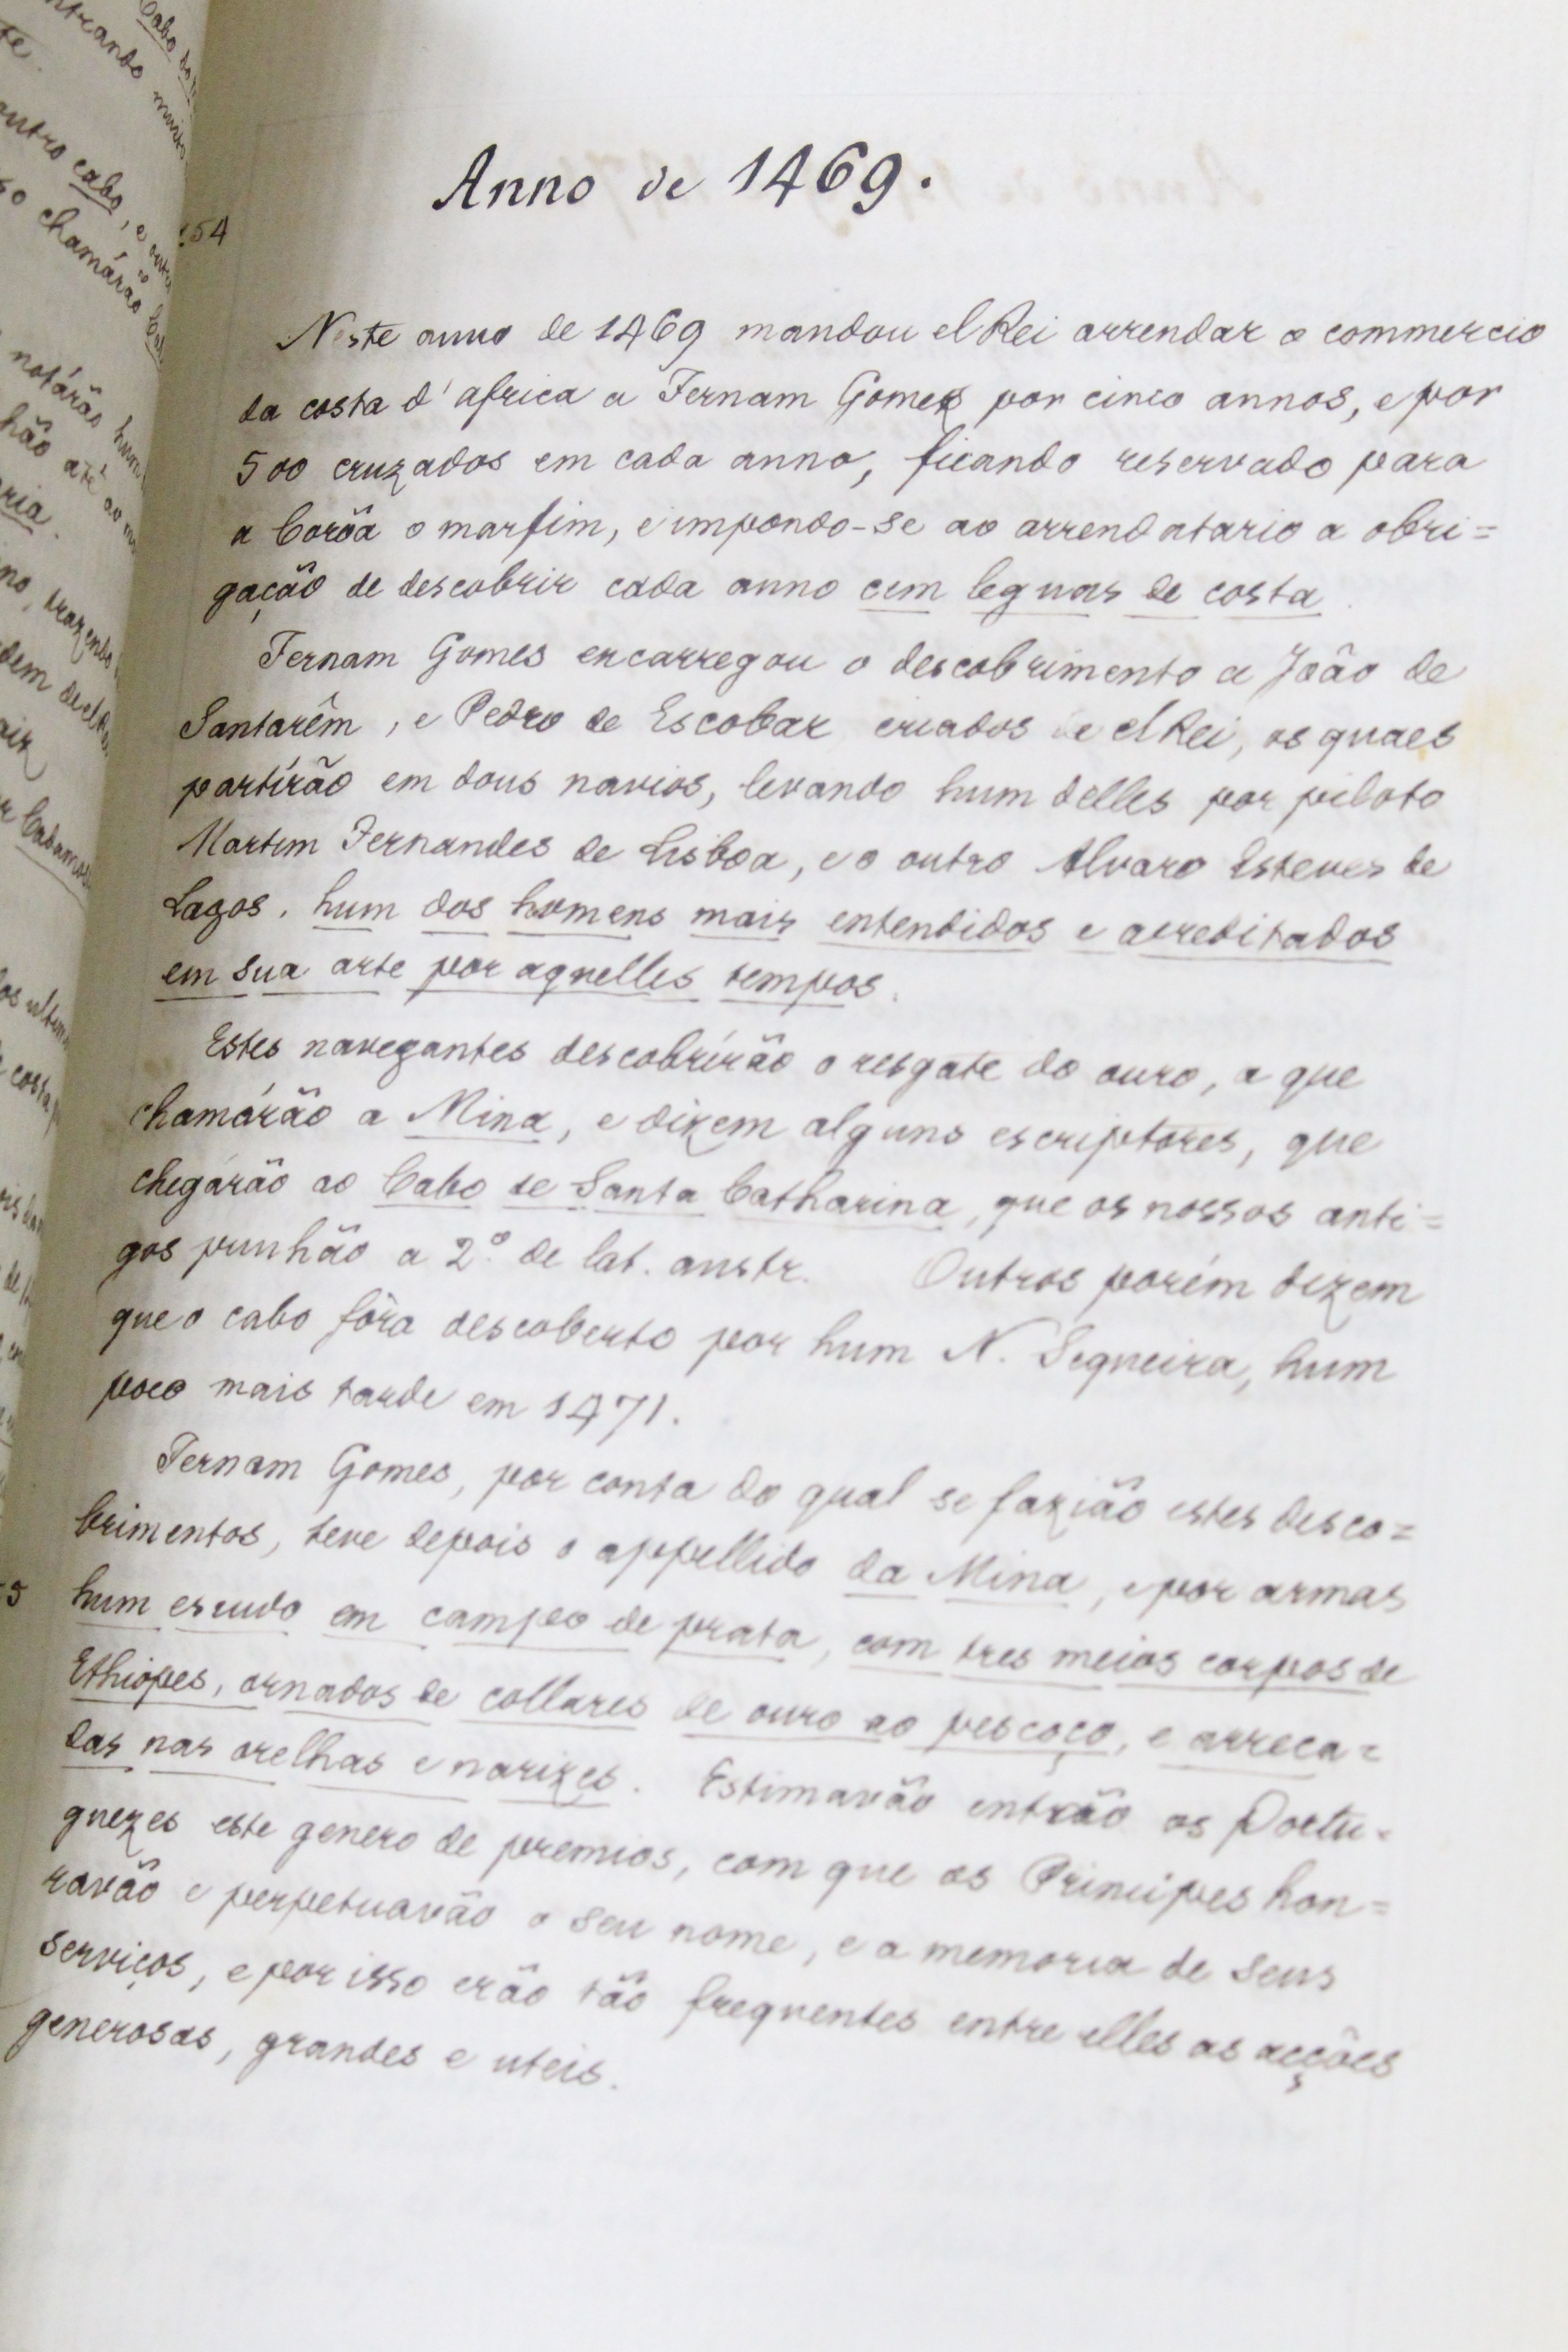 Anno de 1469.
54
Neste anno de 1469 mandou el Rei arrendar o commercio
da costa d'africa a Fernam Gomes por cinco annos, e por
500 cruzados em cada anno, ficando reservado para
a Corôa o marfim, e impondo-se ao arrendatario a obri=
gação de descobrir cada anno cem leguas de costa.
Fernam Gomes encarregou o descobrimento a João de
Santarêm, e Pedro de Escobar criados de el Rei, os quaes
partírão em dous navios, levando hum delles por piloto
Martim Fernandes de Lisboa, e o outro Alvaro Esteves de
Lagos, hum dos homens mais entendidos e acreditados
em sua arte por aquelles tempos.
Estes navegantes descobrírão o resgate do ouro, a que
chamárão a Mina, e dizem alguns escriptores, que
chegárão ao Cabo de Santa Catharina, que os nossos anti=
gos punhão a 2º. de lat. austr. Outros porém dizem
que o cabo fôra descoberto por hum N. Sequeira, hum
poco mais tarde em 1471.
Fernam Gomes, por conta do qual se fazião estes desco=
brimentos, teve depois o appellido da Mina, e por armas
hum escudo em campo de prata, com tres meios corpos de
Ethiopes, ornados de collares de ouro ao pescoço, e arreca=
das nas orelhas e narizes. Estimavão entrão os Portu=
guezes este genero de premios, com que os Principes hon=
ravão e perpetuavão o seu nome, e a memoria de seus
serviços, e por isso erão tão frequentes entre elles as acções
generosas, grandes e uteis.